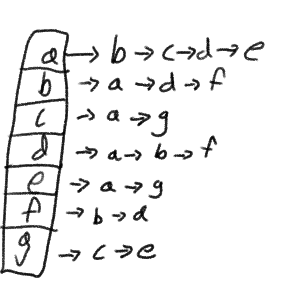 a → b → c → d → e
b → a → d → f
c → a → g
d → a → b → f
e → a → g
f → b → d
g → c → e